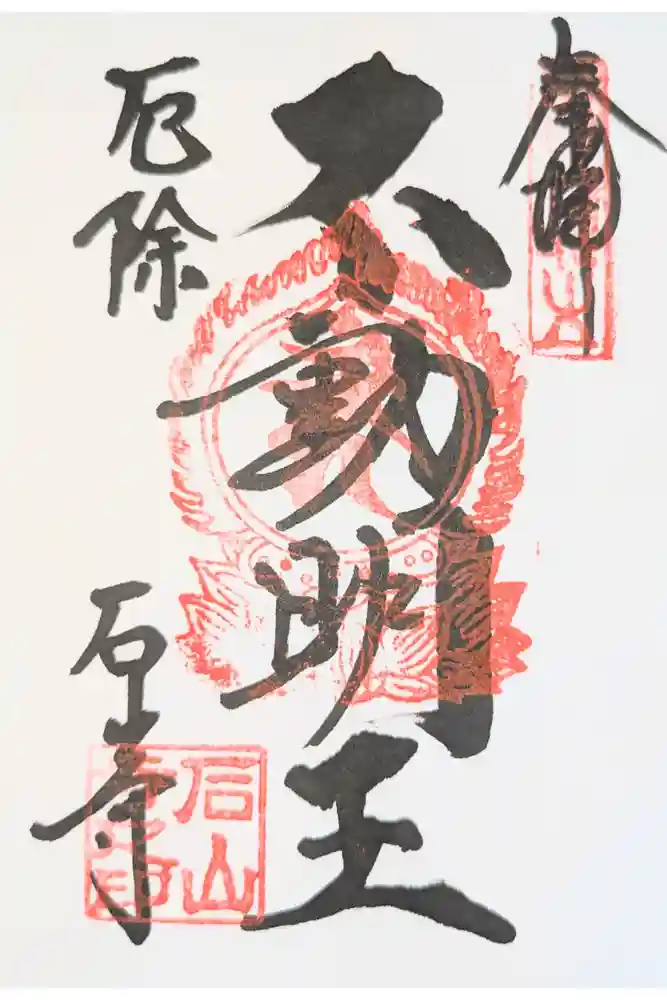 奉拝
不動明王
厄除
石山寺
石山
寺之印